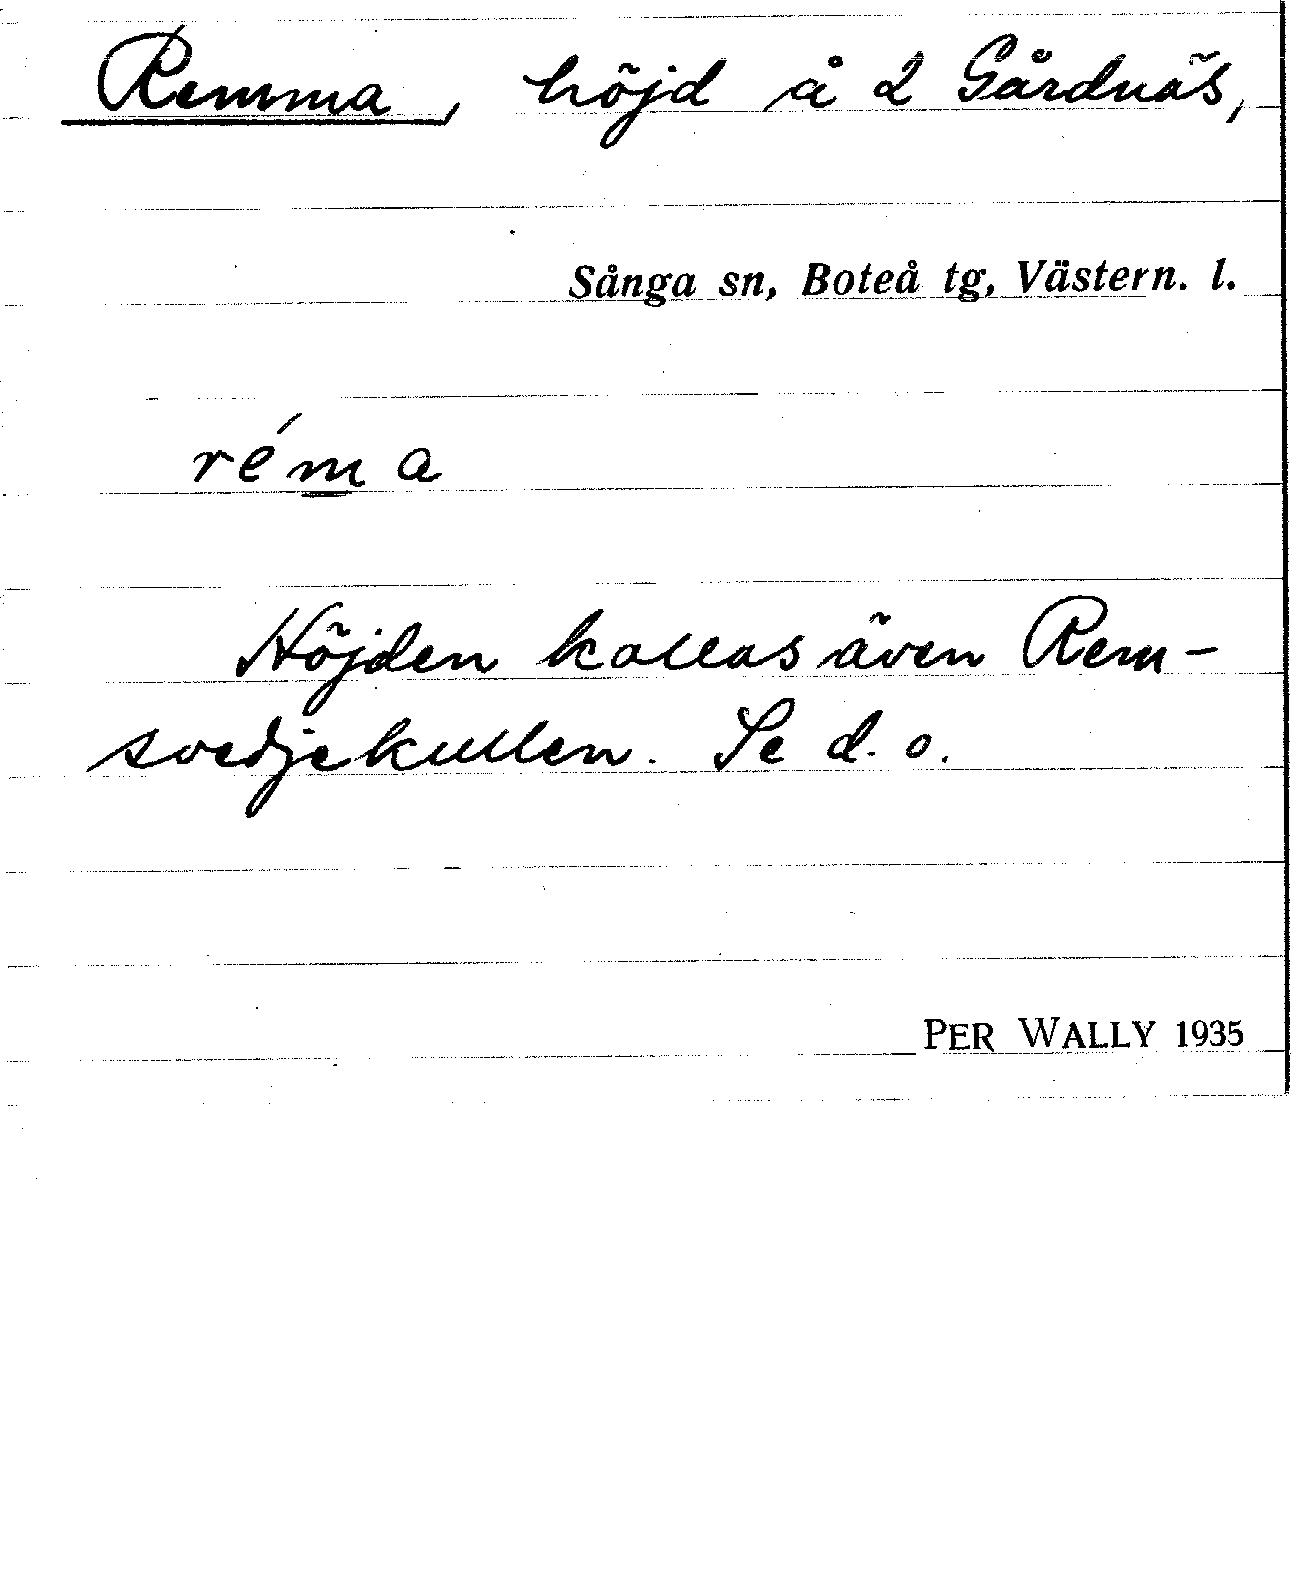 Remma, höjd å 2 Gårdnäs,
Sånga sn, Boteå tg, Västern. l.
réma
Höjden kallas även Rem-
svedjekullen. Se d. o.
PER WALLY 1935